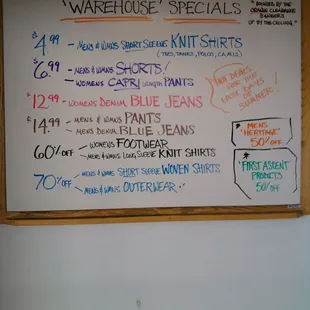 "WAREHOUSE" SPECIALS
$4.99 - MENS & WMNS SHORT SLEEVE KNIT SHIRTS
(TEES, TANKS, POLOS, CAMIS)
$6.99 - MENS & WMNS SHORTS!
WOMENS CAPRI LENGTH PANTS
$12.99 - WOMENS DENIM BLUE JEANS
$14.99 - MENS & WMNS PANTS
MENS DENIM BLUE JEANS
60% OFF - WOMENS FOOTWEAR
MENS & WMNS LONG SLEEVE KNIT SHIRTS
70% OFF - MENS & WMNS SHORT SLEEVE WOVEN SHIRTS
MENS & WMNS OUTERWEAR
* DENOTED BY THE
ORANGE CLEARANCE
BANNERS
UP BY THE CEILING *
"HOT DEALS
FOR THE
LAST DAYS
OF SUMMER!"
MENS
"HERITAGE"
50% OFF
"FIRST ASCENT"
PRODUCTS
50% OFF